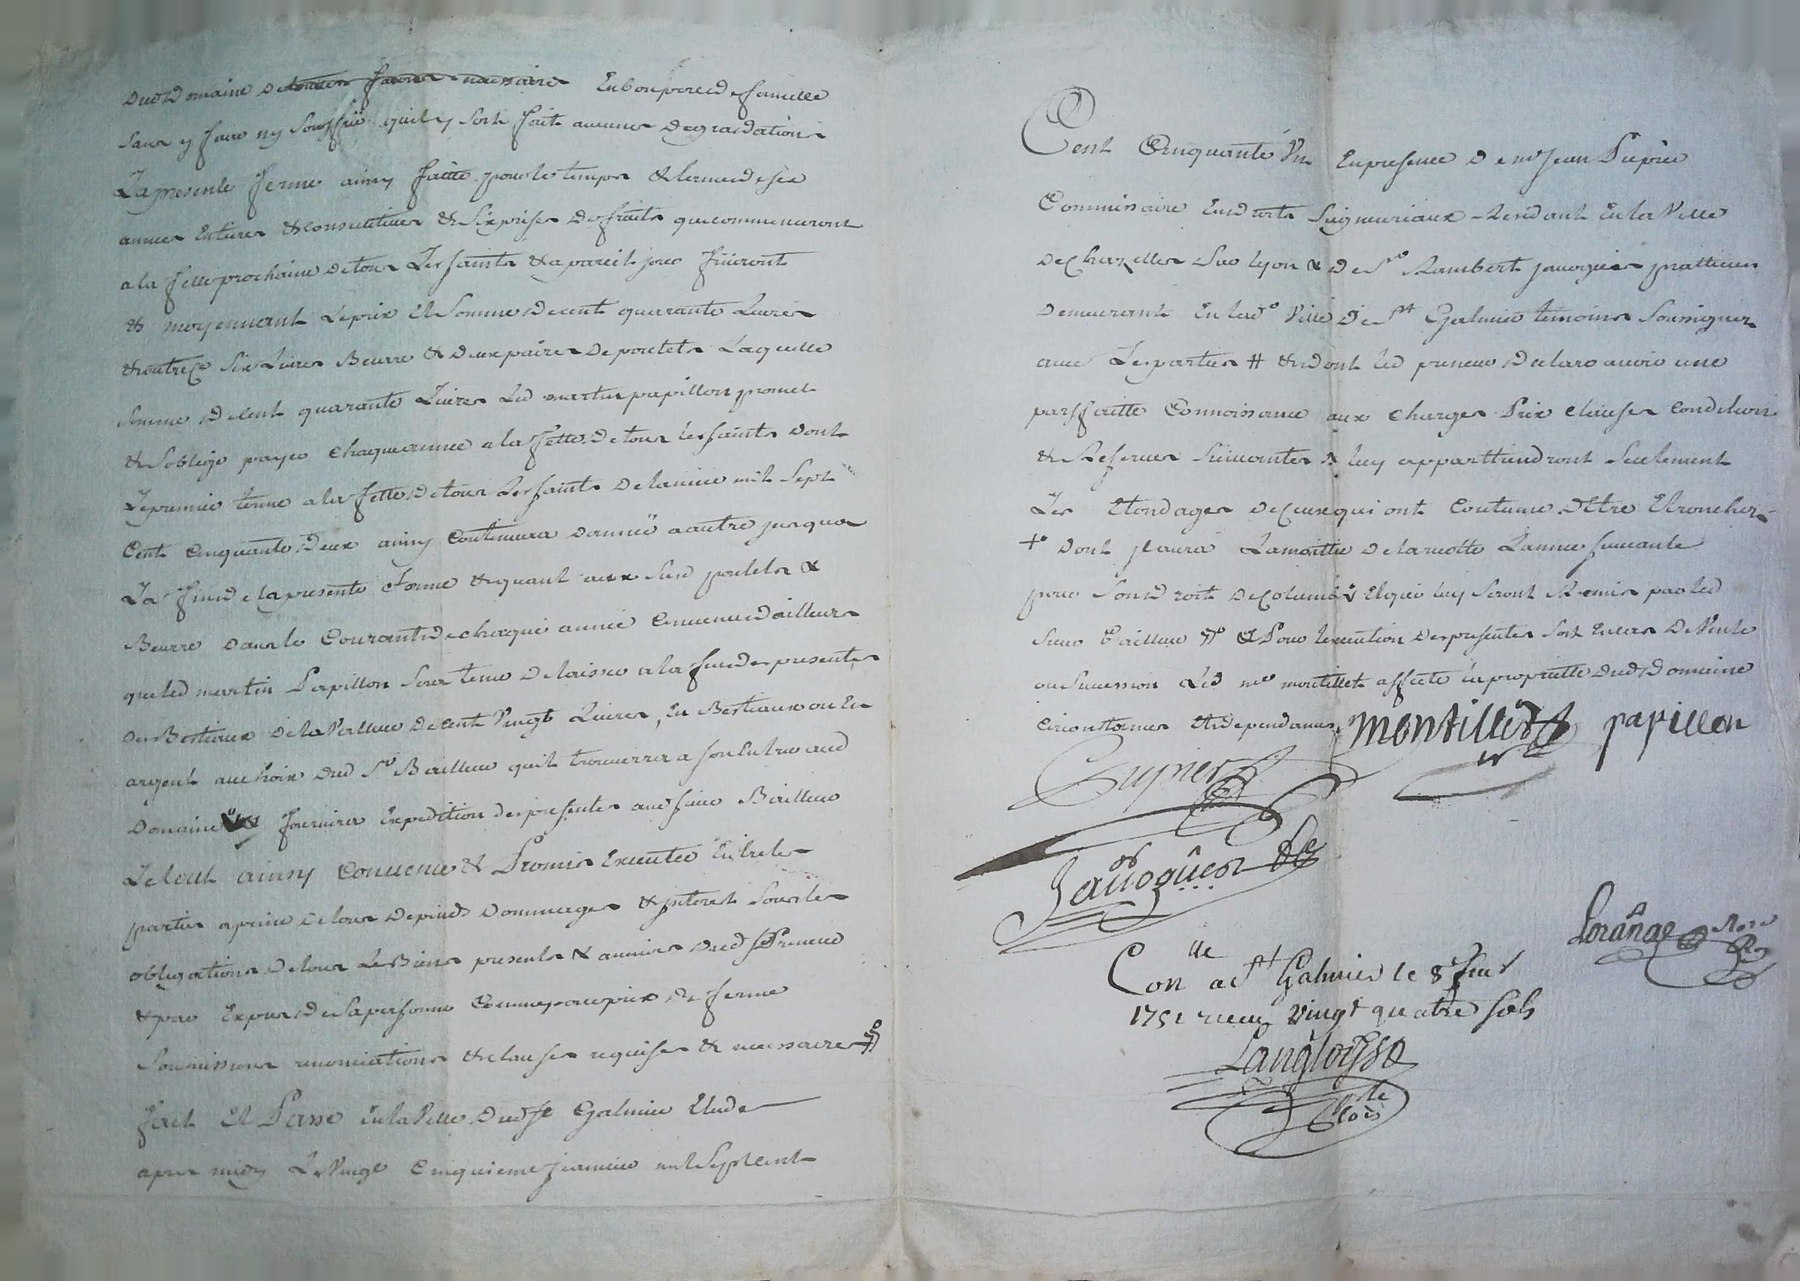 dud domaine de toutes facons necessaires En bon pere de famille
sans y faire ny souffrir quil y soit fait aucunes degradations
La presente ferme ainsy faitte pour le temps & terme de six
annees Entieres & consecutives & six prises de fruits que commenceront
a la feste prochaine de tous Les saints & a pareil jour finiront
& moyennant Le prix Et somme de cent quarante Livres
& outre ce six Livres Beurre & deux paires de poulets Laquelle
somme de cent quarante Livres Led martin papillon promet
& soblige payer chaque annee a la feste de tous les saints dont
Le premier terme a la feste de tous Les saints de lannee mil sept
Cent cinquante deux ainsy Continuera dannée a autre jusqua
La fin de la presente ferme & quant aux susd poulets &
Beurre dans le Courant de chaque année Convenu dailleurs
que led martin Papillon sera tenu de laisser a la fin des presentes
des Bestiaux de la Valleur de cent Vingt Livres, En Bestiaux ou En
argent au choix dud Sr Bailleur quil trouverra a son Entree aud
domaine & fournira Expedition des presentes aud sieur Bailleur
Le tout ainsy Convenu & Promis Executer Entre les
parties a peine de tous depends dommages & jnterest sous les
obligations de tous Les Biens presents & avenirs dud Sr Preneur
& par Expres de sa personne Comme pour prix de ferme
soumissions renonciations & clauses requises & necessaires #
fait Et Passé En la Ville dud St Galmier Etude
apres midy Le Vingt cinquieme janvier mil sept cent
Cent Cinquante Un En presence de me Jean Dupier
Commissaire En droits seigneuriaux Residant En la Ville
de chazelles sur Lyon & de Sr Rambert javogues pratticien
demeurant En lade Ville de St Galmier temoins soussignez
avec Les parties # & dont led preneur declare avoir une
parffaitte Connoissance aux charges Prix clauses Conditions
& Reserves suivantes & luy appartiendront seulement
Les Etondages de Ceux qui ont Coutume dEtre Ebronchez
+ dont jl aura La moittie de la recolte Lannee suivante
pour son droit de Colomb Et qui luy seront Remis par led
sieur Bailleur # & Pour lexecution des presentes soit En cas de Vente
ou succession Led me montillet affecte la proprietté dud domaine
circonstances Et dependances. Montillet papillon
Dupier
Javogues
Lorange Nore
Conlle a St Galmier le 8e fevr
1751 receu Vingt quatre sols
Langlois